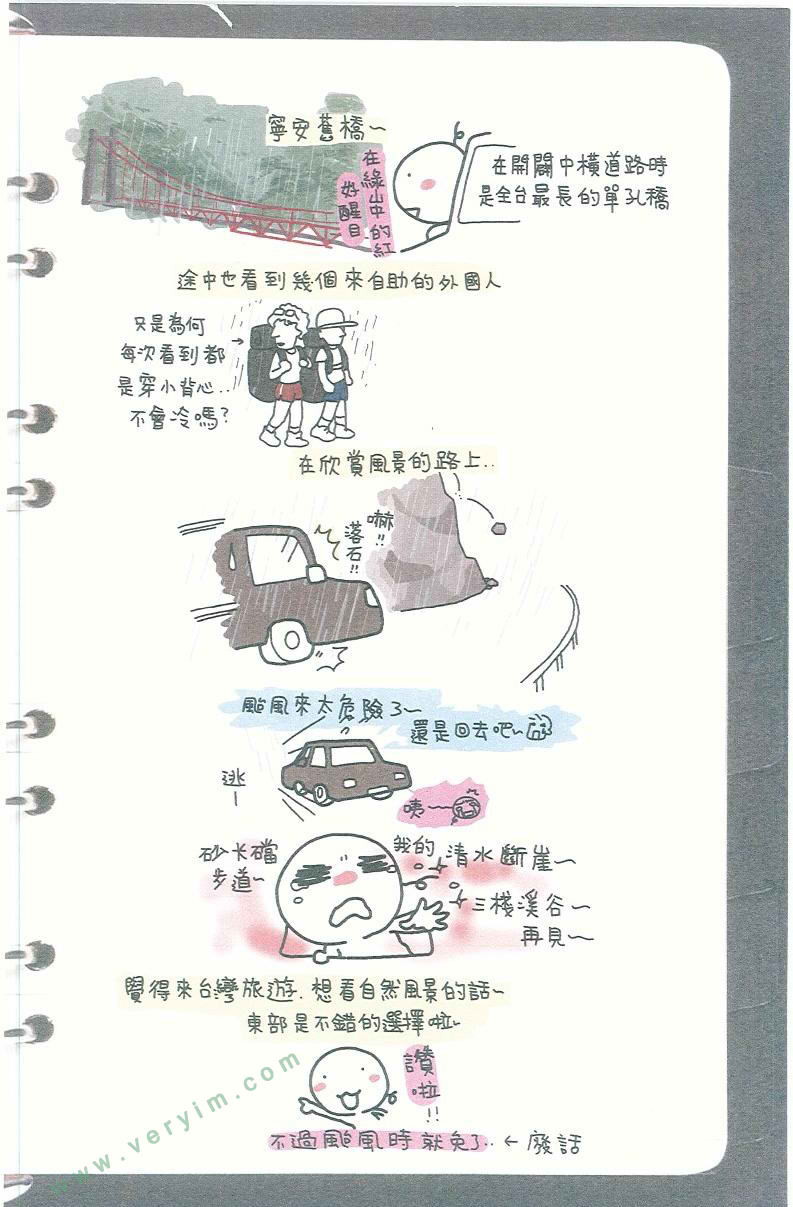 寧安舊橋~
在綠山中的紅
好醒目
在開闢中橫道路時
是全台最長的單孔橋
途中也看到幾個來自助的外國人
只是為何
每次看到都
是穿小背心..
不會冷嗎?
在欣賞風景的路上..
嚇!!
落石!!
颱風來太危險了~
還是回去吧~
逃—
咦~~
砂卡礑
步道~
我的 清水斷崖~
三棧溪谷~
再見~
覺得來台灣旅遊.想看自然風景的話~
東部是不錯的選擇啦~
讚啦!!
不過颱風時就免了.. ← 廢話
www.veryim.com